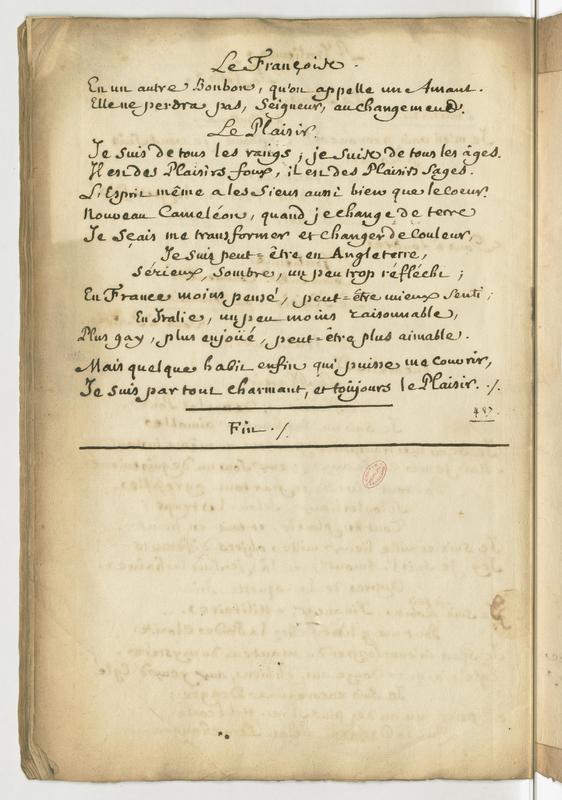 Le François.
En un autre Bonbon, qu'on appelle une Amant.
Elle ne perdra pas, Seigneur, au changement.
Le Plaisir.
Je suis de tous les rangs; je suis de tous les âges.
Il est des Plaisirs foux, il est des Plaisirs Sages.
L'Esprit même a les Siens aussi bien que le coeur.
Nouveau Caméléon, quand je change de terre
Je Sçais me transformer et changer de Couleur,
Je suis peut=être en Angleterre,
Sérieux, Sombre, un peu trop réfléchi;
En France moins pensé, peut=être mieux Senti;
En Italie, un peu moins raisonnable,
Plus gay, plus enjoüé, peut=être plus aimable.
Mais quelque habit enfin qui puisse me couvrir,
Je suis partout charmant, et toûjours le Plaisir. ./.
Fin ./.